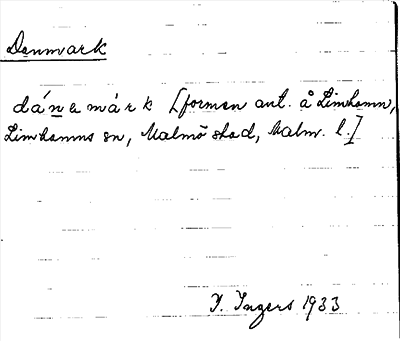 Danmark
dánemárk [formen ant. å Limhamn,
Limhamns sn, Malmö stad, Malm. l.]
I. Ingers 1933